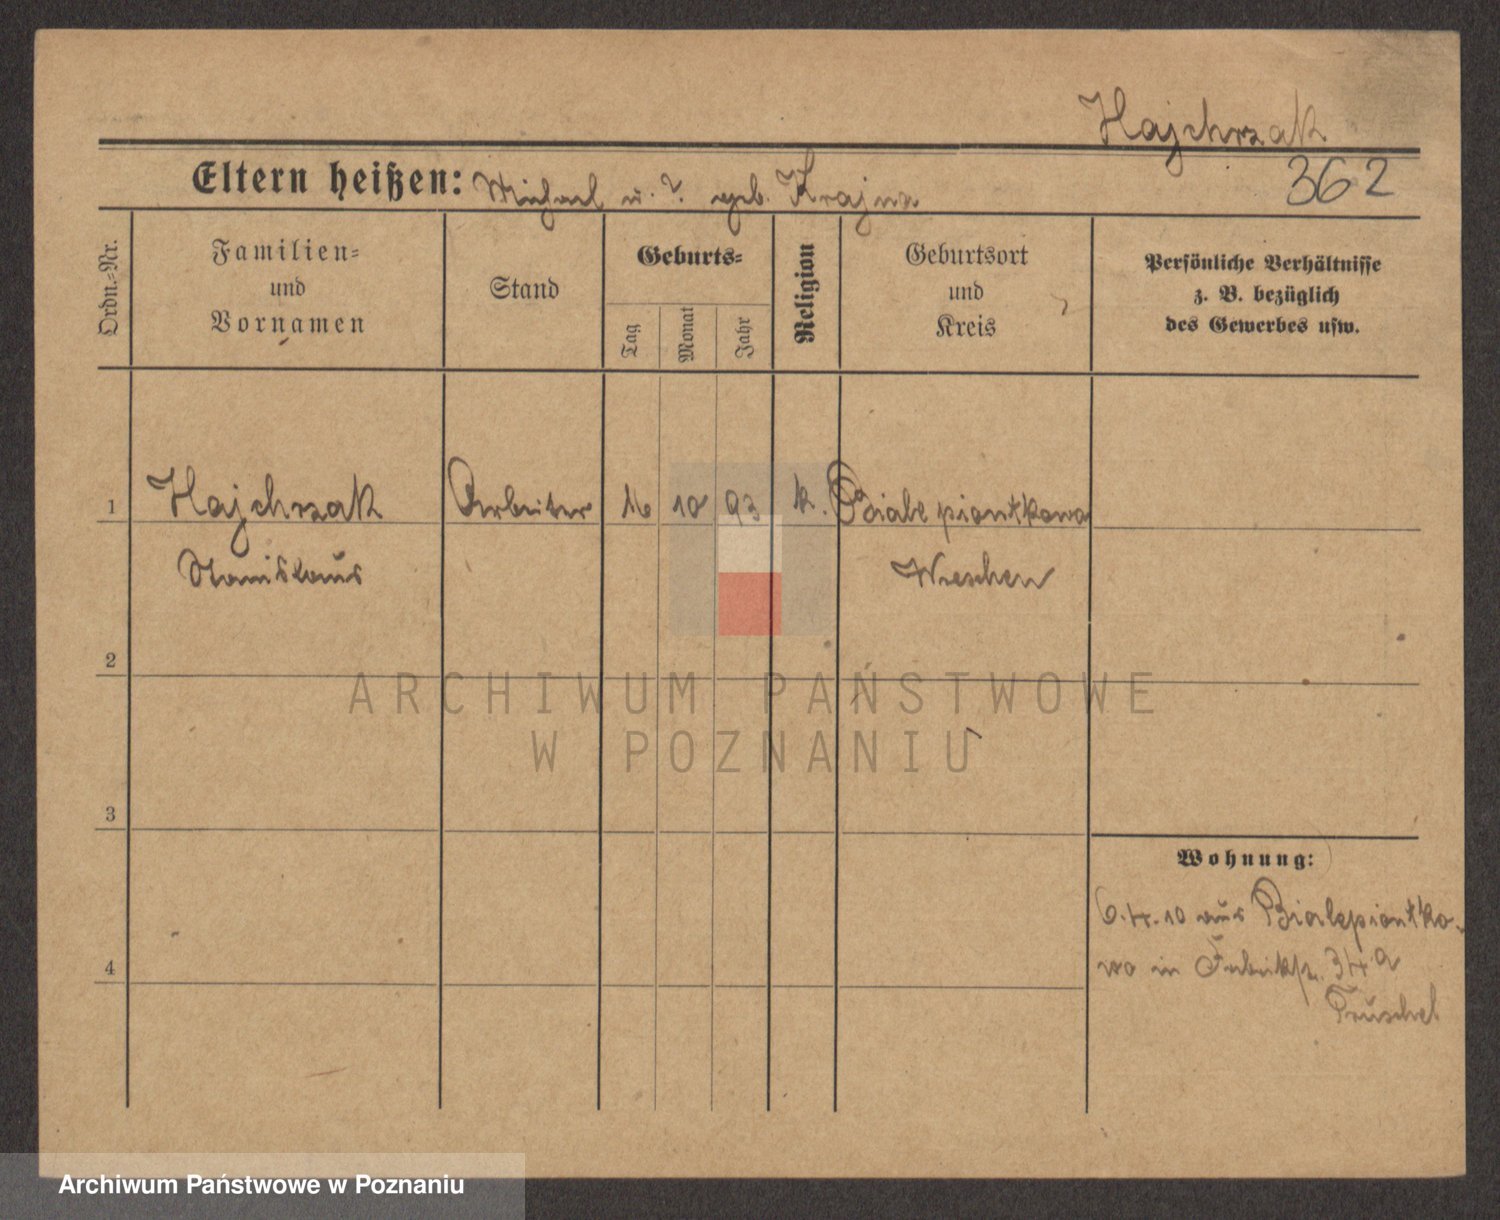 Hajchrzak
362
Eltern heißen: Michael u. ? geb. Krajna
Ordn.-Nr.
Familien-
und
Vornamen
Stand
Geburts-
Tag
Monat
Jahr
Religion
Geburtsort
und
Kreis
Persönliche Verhältnisse
z. B. bezüglich
des Gewerbes usw.
1 Hajchrzak Arbeiter 16 10 93 k. Biale piontkowo
Stanislaus Wreschen
2
ARCHIWUM PAŃSTWOWE
W POZNANIU
3
Wohnung:
6.4.10 aus Bialepiontko-
wo in 34a
4
Archiwum Państwowe w Poznaniu